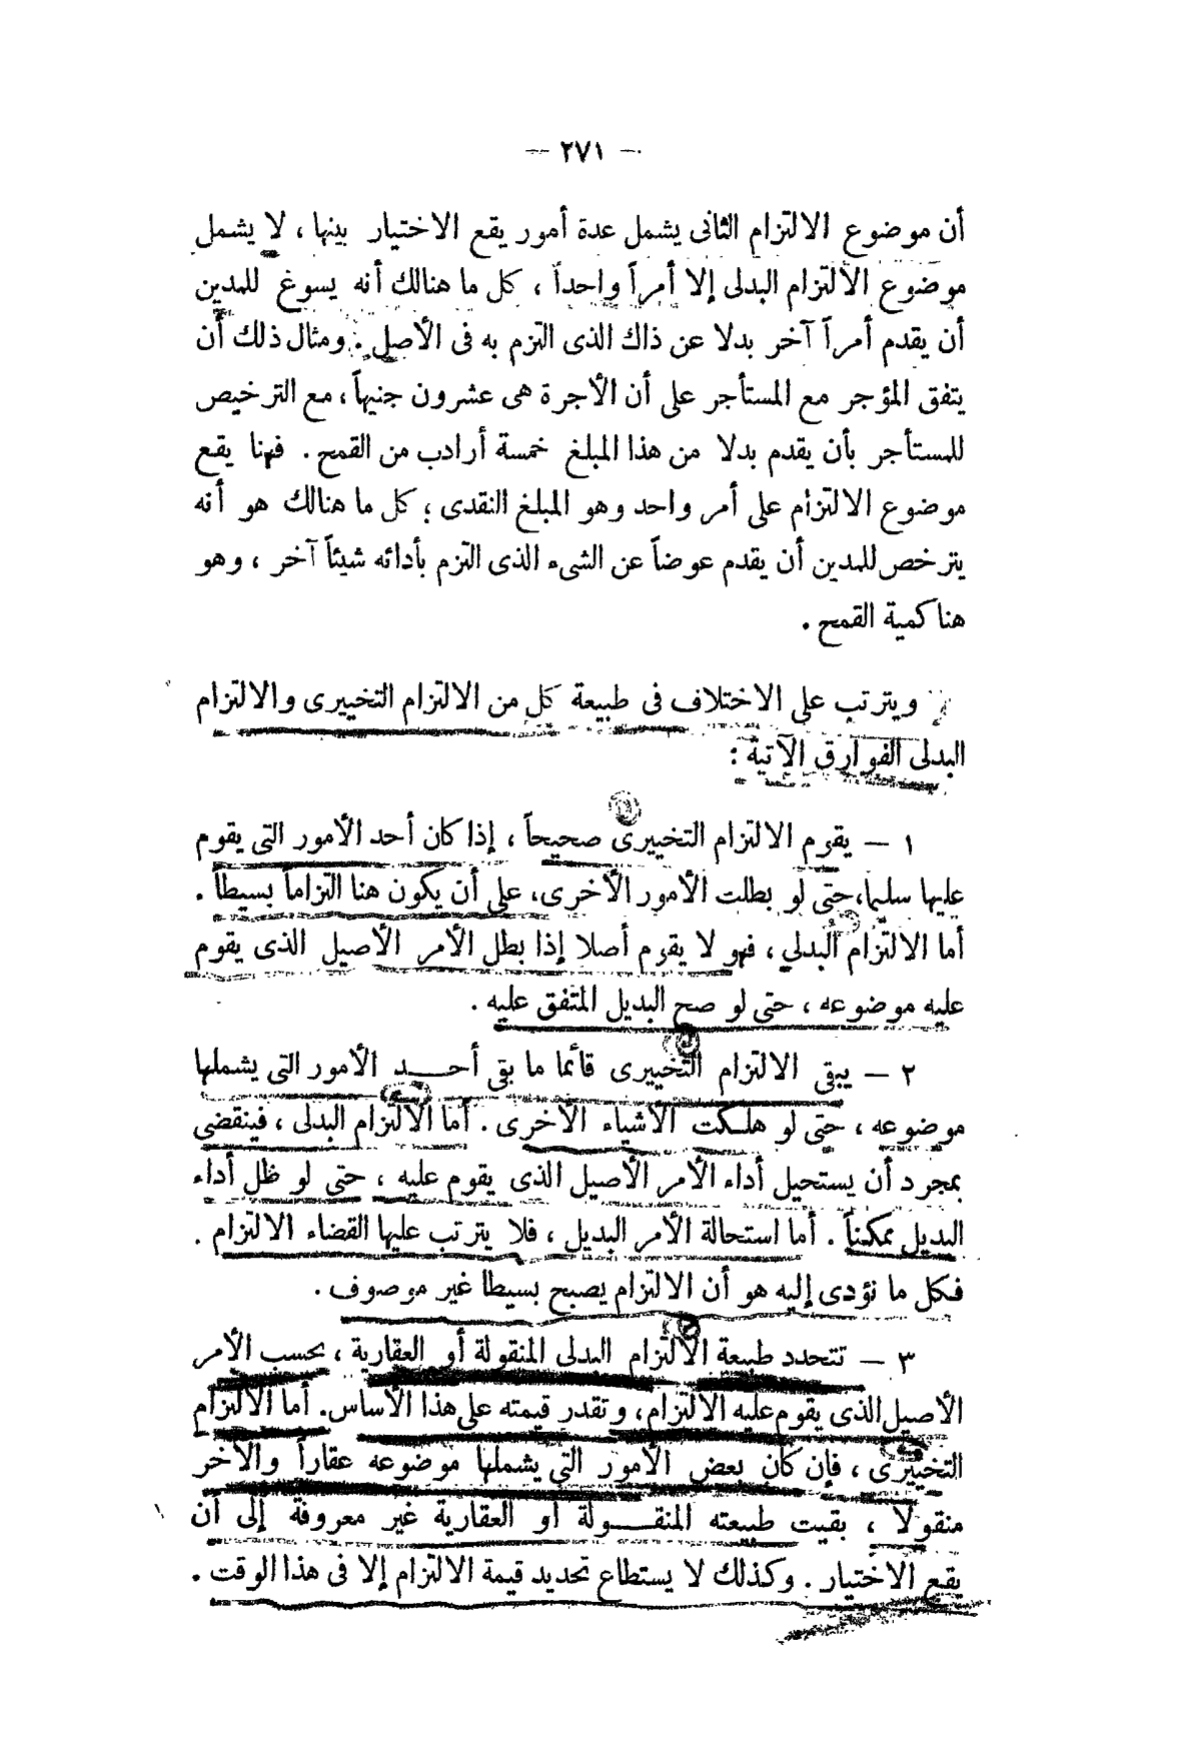 — ٢٧١ —
أن موضوع الالتزام الثانى يشمل عدة أمور يقع الاختيار بينها ، لا يشمل
موضوع الالتزام البدلى إلا أمراً واحداً ، كل ما هنالك أنه يسوغ للمدين
أن يقدم أمراً آخر بدلا عن ذاك الذى التزم به فى الأصل . ومثال ذلك أن
يتفق المؤجر مع المستأجر على أن الأجرة هى عشرون جنيهاً ، مع الترخيص
للمستأجر بأن يقدم بدلا من هذا المبلغ خمسة أرادب من القمح . فهنا يقع
موضوع الالتزام على أمر واحد وهو المبلغ النقدى ؛ كل ما هنالك هو أنه
يترخص للمدين أن يقدم عوضاً عن الشىء الذى التزم بأدائه شيئاً آخر ، وهو
هنا كمية القمح .
ويترتب على الاختلاف فى طبيعة كل من الالتزام التخييرى والالتزام
البدلى الفوارق الآتية :
١ — يقوم الالتزام التخييرى صحيحاً ، إذا كان أحد الأمور التى يقوم
عليها سليما، حتى لو بطلت الأمور الأخرى، على أن يكون هنا التزاماً بسيطاً .
أما الالتزام البدلي ، فهو لا يقوم أصلا إذا بطل الأمر الأصيل الذى يقوم
عليه موضوعه ، حتى لو صح البديل المتفق عليه .
٢ — يبقى الالتزام التخييرى قائما ما بقى أحـــد الأمور التى يشملها
موضوعه ، حتى لو هلكت الأشياء الأخرى . أما الالتزام البدلى ، فينقضى
بمجرد أن يستحيل أداء الأمر الأصيل الذى يقوم عليه ، حتى لو ظل أداء
البديل ممكناً . أما استحالة الأمر البديل ، فلا يترتب عليها القضاء الالتزام .
فكل ما تؤدى إليه هو أن الالتزام يصبح بسيطا غير موصوف .
٣ — تتحدد طبيعة الالتزام البدلى المنقولة أو العقارية ، بحسب الأمر
الأصيل الذى يقوم عليه الالتزام، وتقدر قيمته على هذا الأساس. أما الالتزام
التخييرى ، فإن كان بعض الأمور التى يشملها موضوعه عقاراً والآخر
منقولا ، بقيت طبيعته المنقـــولة أو العقارية غير معروفة إلى أن
يقع الاختيار . وكذلك لا يستطاع تحديد قيمة الالتزام إلا فى هذا الوقت .